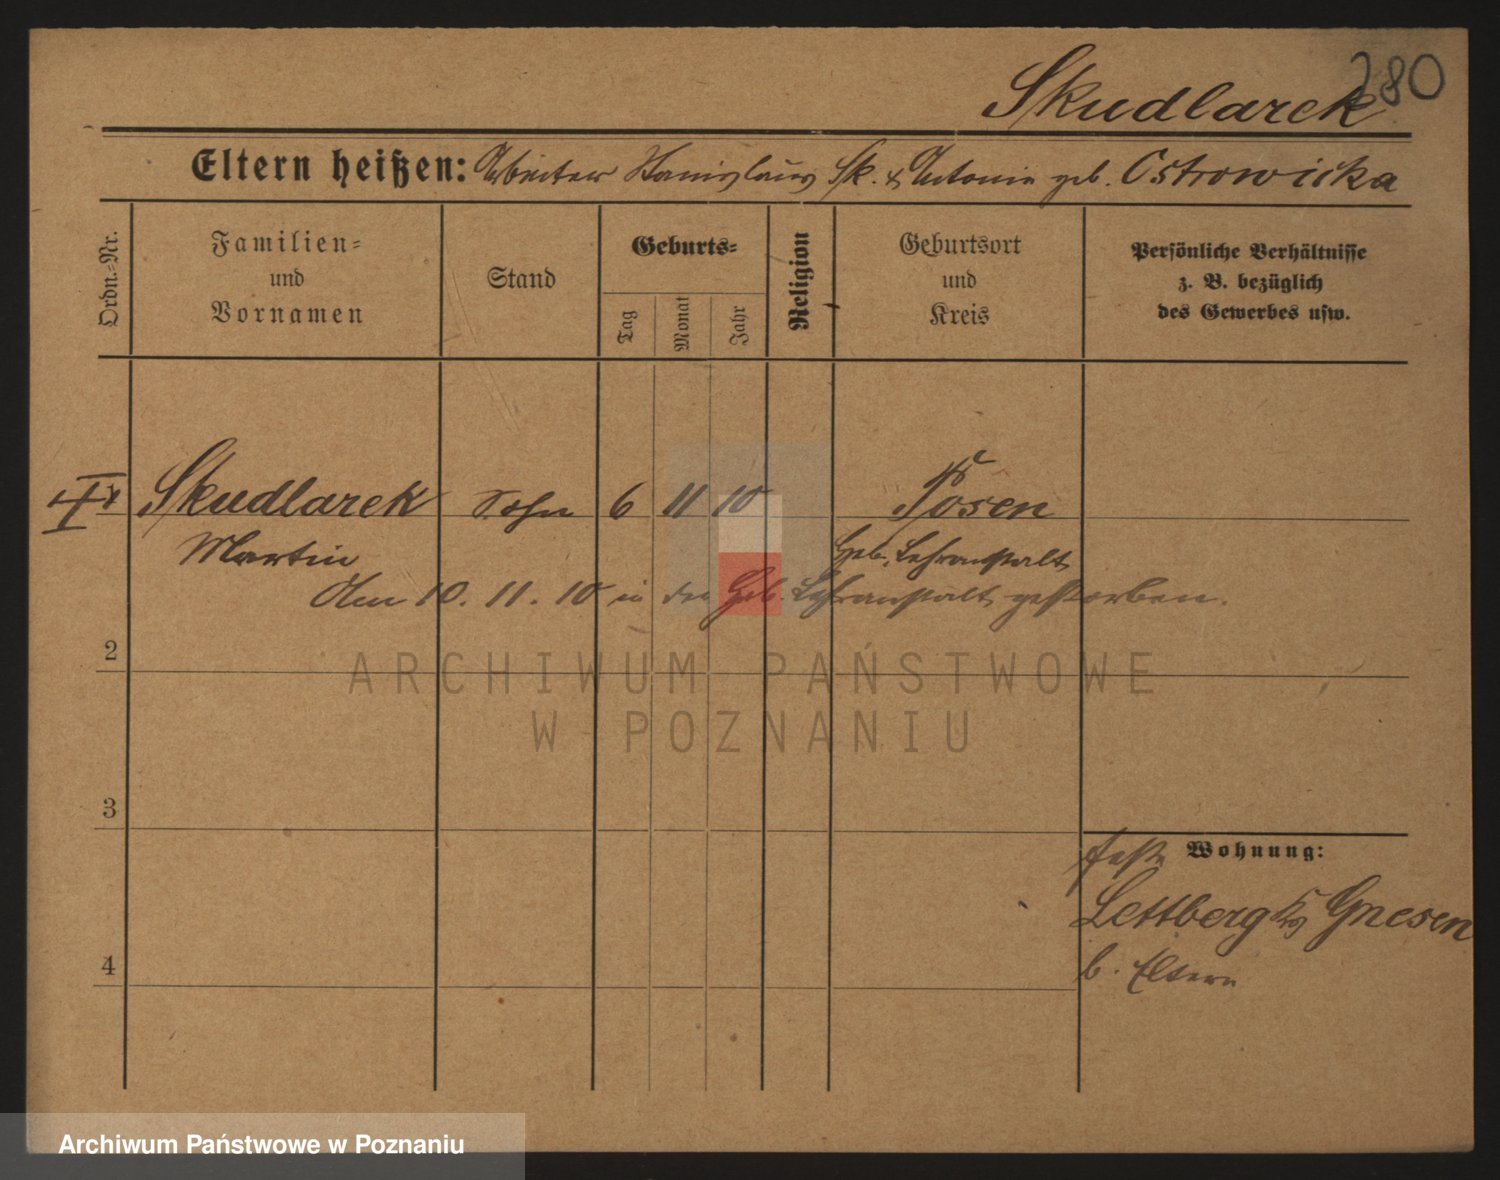 280
Skudlarek
Eltern heißen: Arbeiter Stanislaus Sk. & Antonie geb. Ostrowicka
Ordn.-Nr.
Familien-
und
Vornamen
Stand
Geburts-
Tag
Monat
Jahr
Religion
Geburtsort
und
Kreis
Persönliche Verhältnisse
z. B. bezüglich
des Gewerbes usw.
Skudlarek Sohn 6 11 10 Posen
Martin Geb. Lehranstalt
Am 10. 11. 10 in der Geb. Lehranstalt gestorben.
2
ARCHIWUM PAŃSTWOWE
W POZNANIU
3
feste Wohnung:
Lettberg Krs Gnesen
4
b. Eltern
Archiwum Państwowe w Poznaniu